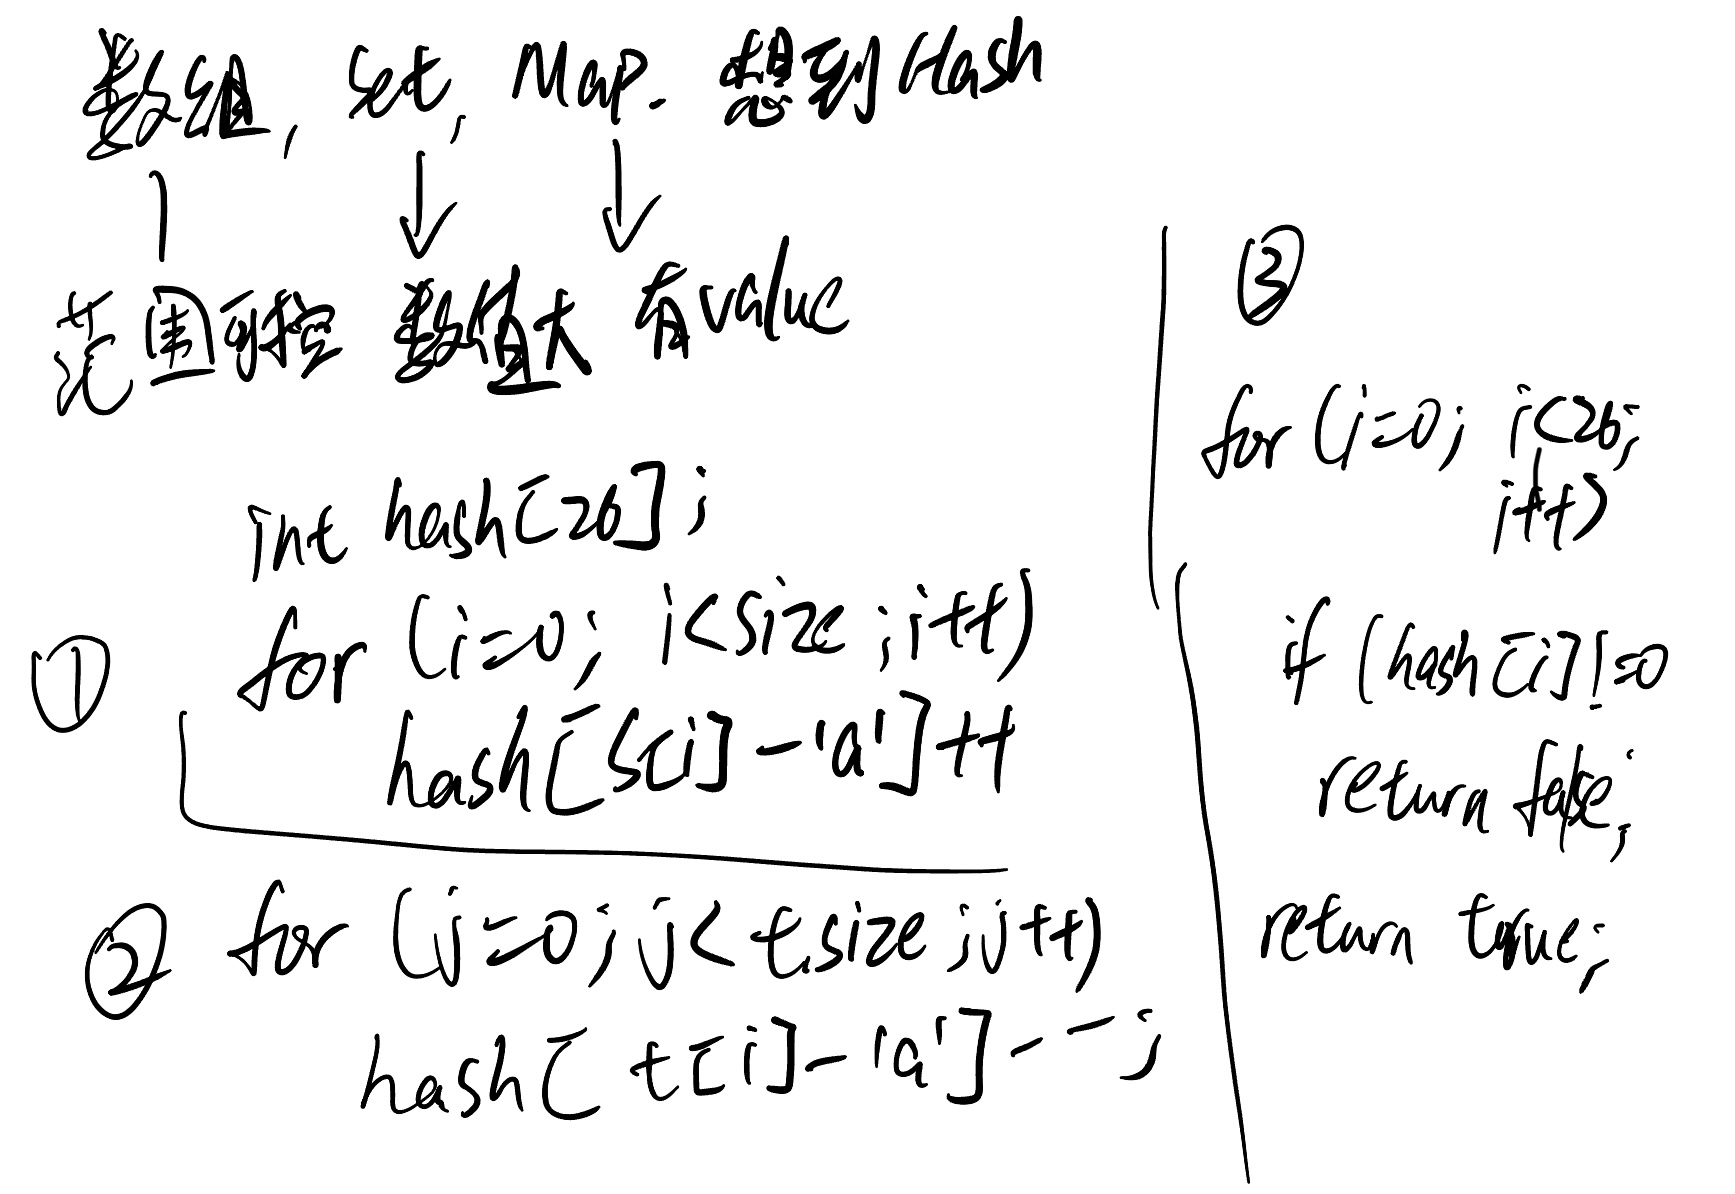 数组, set, Map. 想到Hash
范围可控 数值大 有value
int hash[26];
①
for (i=0; i<size; i++)
hash[s[i]-'a']++
② for (j=0; j<t.size; j++)
hash[t[i]-'a']--;
③
for (i=0; i<26;
i++)
if (hash[i]!=0
return false;
return true;